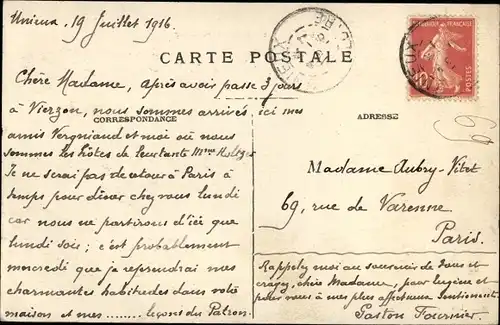 Unieux, 19 Juillet 1916
CARTE POSTALE
Chère Madame, après avoir passé 3 jours
à Vierzon, nous sommes arrivés ici mes
CORRESPONDANCE
ADRESSE
amis Vergniaud et moi où nous
sommes les hôtes de Mme Holtzer
Je ne serai pas de retour à Paris à
temps pour dîner chez vous lundi
car nous ne partirons d'ici que
lundi soir ; c'est probablement
mercredi que je reprendrai mes
charmantes habitudes dans votre
maison et mes ........ leçons du Patron.
Madame Aubry-Vitet
69, rue de Varenne
Paris.
Rappelez moi au souvenir de tous et
croyez, chère Madame, pour
et pour vous à mes plus affectueux sentiments.
Gaston Fournier.
RÉPUBLIQUE FRANÇAISE
POSTES
10
UNIEUX
LOIRE